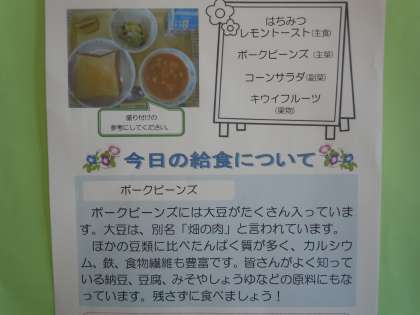 はちみつ
レモントースト(主食)
ポークビーンズ(主菜)
コーンサラダ(副菜)
キウイフルーツ
(果物)
盛り付けの
参考にしてください。
今日の給食について
ポークビーンズ
ポークビーンズには大豆がたくさん入っていま
す。大豆は、別名「畑の肉」と言われています。
ほかの豆類に比べたんぱく質が多く、カルシウ
ム、鉄、食物繊維も豊富です。皆さんがよく知って
いる納豆、豆腐、みそやしょうゆなどの原料にもな
っています。残さずに食べましょう！